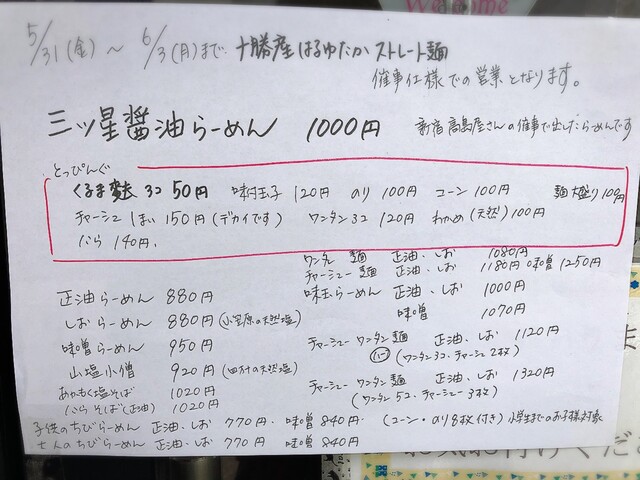 Welcome
5/31(金)～6/3(月)まで 十勝産はるゆたかストレート麺
催事仕様での営業となります。
三ツ星醤油らーめん 1000円 新宿高島屋さんの催事で出したらーめんです
とっぴんぐ
くるま麩 3コ 50円 味付玉子 120円 のり 100円 コーン 100円 麺大盛り100円
チャーシュー 1まい 150円(デカイです) ワンタン3コ 120円 わかめ(天然)100円
ばら 140円.
ワンタン麺 正油・しお 1080円
チャーシュー麺 正油、しお 1180円 味噌 1250円
正油らーめん 880円 味玉らーめん 正油・しお 1000円
しおらーめん 880円 味噌 1070円
味噌らーめん 950円 チャーシューワンタン麺 正油、しお 1120円
(ワンタン3コ、チャーシュー2枚)
山塩小僧 920円
あかもく塩そば 1020円 チャーシューワンタン麺 正油、しお 1320円
ばらそば(正油) 1020円 (ワンタン5コ、チャーシュー3枚)
子供のちびらーめん 正油・しお 770円、味噌 840円、(コーン・のり8枚付き)小学生までのお子様対象
大人のちびらーめん 正油、しお 770円 味噌 840円